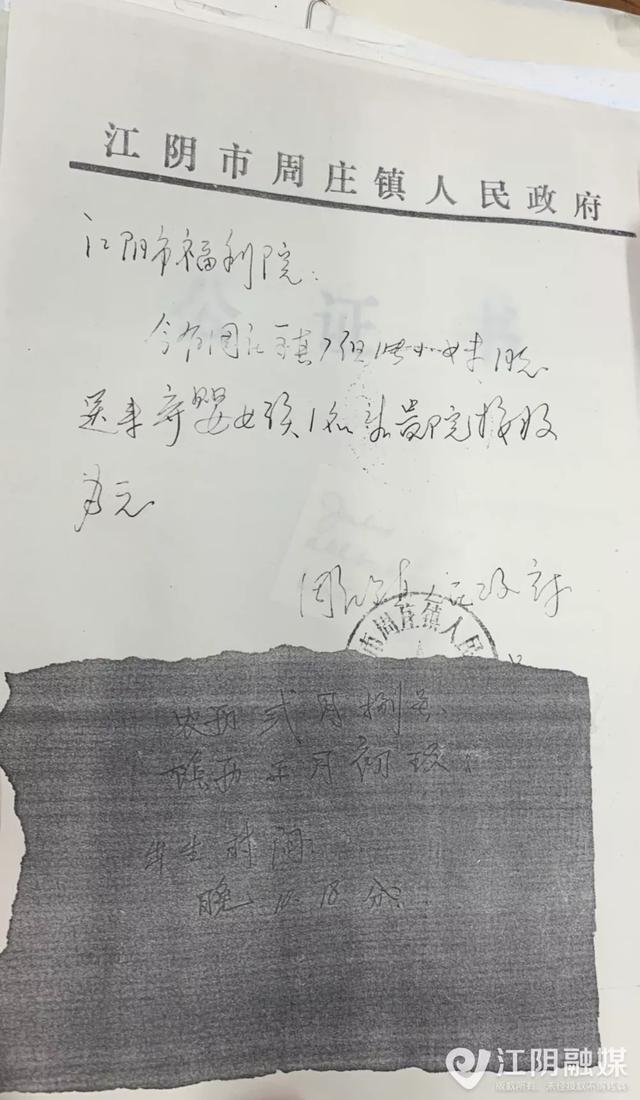 江阴市周庄镇人民政府
江阴市福利院:
今有周庄镇
送来弃婴女孩1名 贵院接收
为元
周庄镇人民政府
市周庄镇人民
农历 贰月捌号
月初玖
出生时间
晚 18分
江阴融媒
版权所有,未经授权不得转载